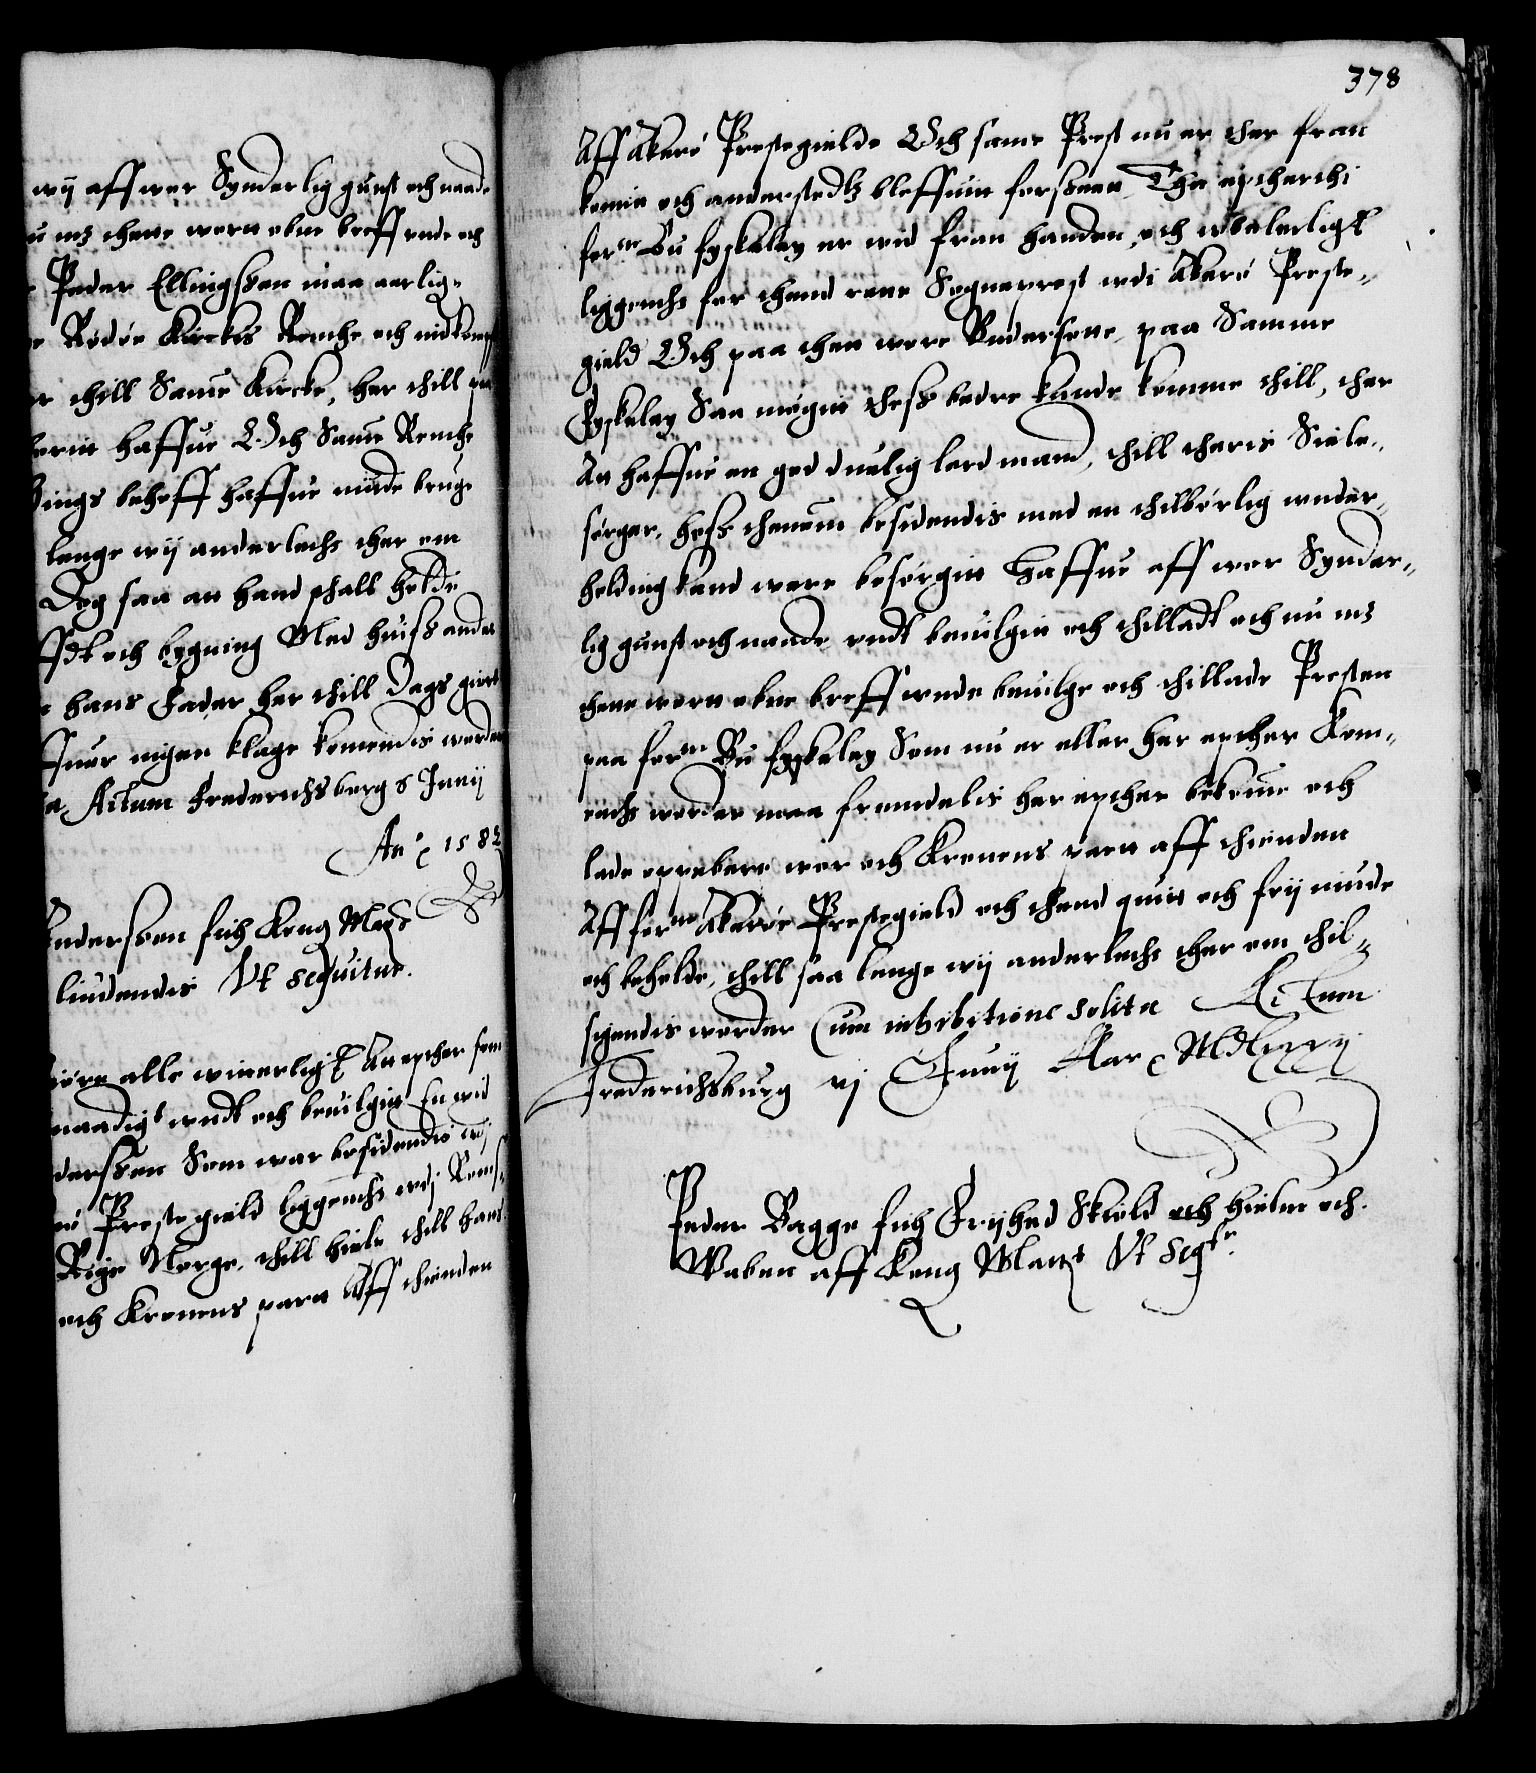 wij aff wor Synderlig gunst och naade
nu mz thene worn obne breff unde och
Peder Ellingssen maa aarlig-
Rødøe Kirckis Renthe och indkomst
er thill Same Kircke, her thill
haffue Och Same Renthe
bings behoff haffue nyde bruge
lenge wij anderleds ther om
Dog saa an hand schall holde
och bygning Med huiss andet
hans Fader her thill Dags giort
ffuer nogen klage komendis worder
Actum Frederichsborg 8 Junij
An c 158
Anderssen fich Kong Mats
liudendis Vt sequitur.
giøre alle witterligt An epther som
naadigst undt och beuilgitt En wid
derssen Som war besidendis udj
Prestegield liggendis udj Roms-
Rige Norge, thill hielp thill hans
och Kronens parn Aff thienden
378
Aff Akerø Prestegielde Och same Prest nu er ther fran
komin och anderstedtz bleffuin forssean Tha epther thi
forne Bu fyskeley er wid fran handen, och ubeleiligt
liggendis for thend rette Sogneprest udi Akerø Preste-
gield Och paa then wore Undersotte, paa Samme
Fyskeley Saa mogit thess bedre kunde komme thill, ther
An haffue en god duelig lerd mand, thill theris Siele-
sørger, hoss thenom besidendis med en thilbørlig under-
holding kand were besørgitt Haffue aff wor Synder-
lig gunst och naade undt beuilgitt och thilladt och nu mz
thene worn obne breff unde beuilge och thillade Presten
paa forne Bu fyskeley Som nu er eller her epther Kom-
endis worder maa fremdelis her epther bekome och
lade oppebere wor och Kronens parn aff thienden
Aff forne Akerøe Prestegield och thend quit och frij niude
och beholde, thill saa lenge wij anderledis ther om thil-
sigendis worder Cum inhibitione solita Actum
Frederichsburg vj Junij Aar c Mdlxxxij
Peder Bagge fich Frijhed Skiold och hielm och
Waben aff Kong Matt Vt seqtr.